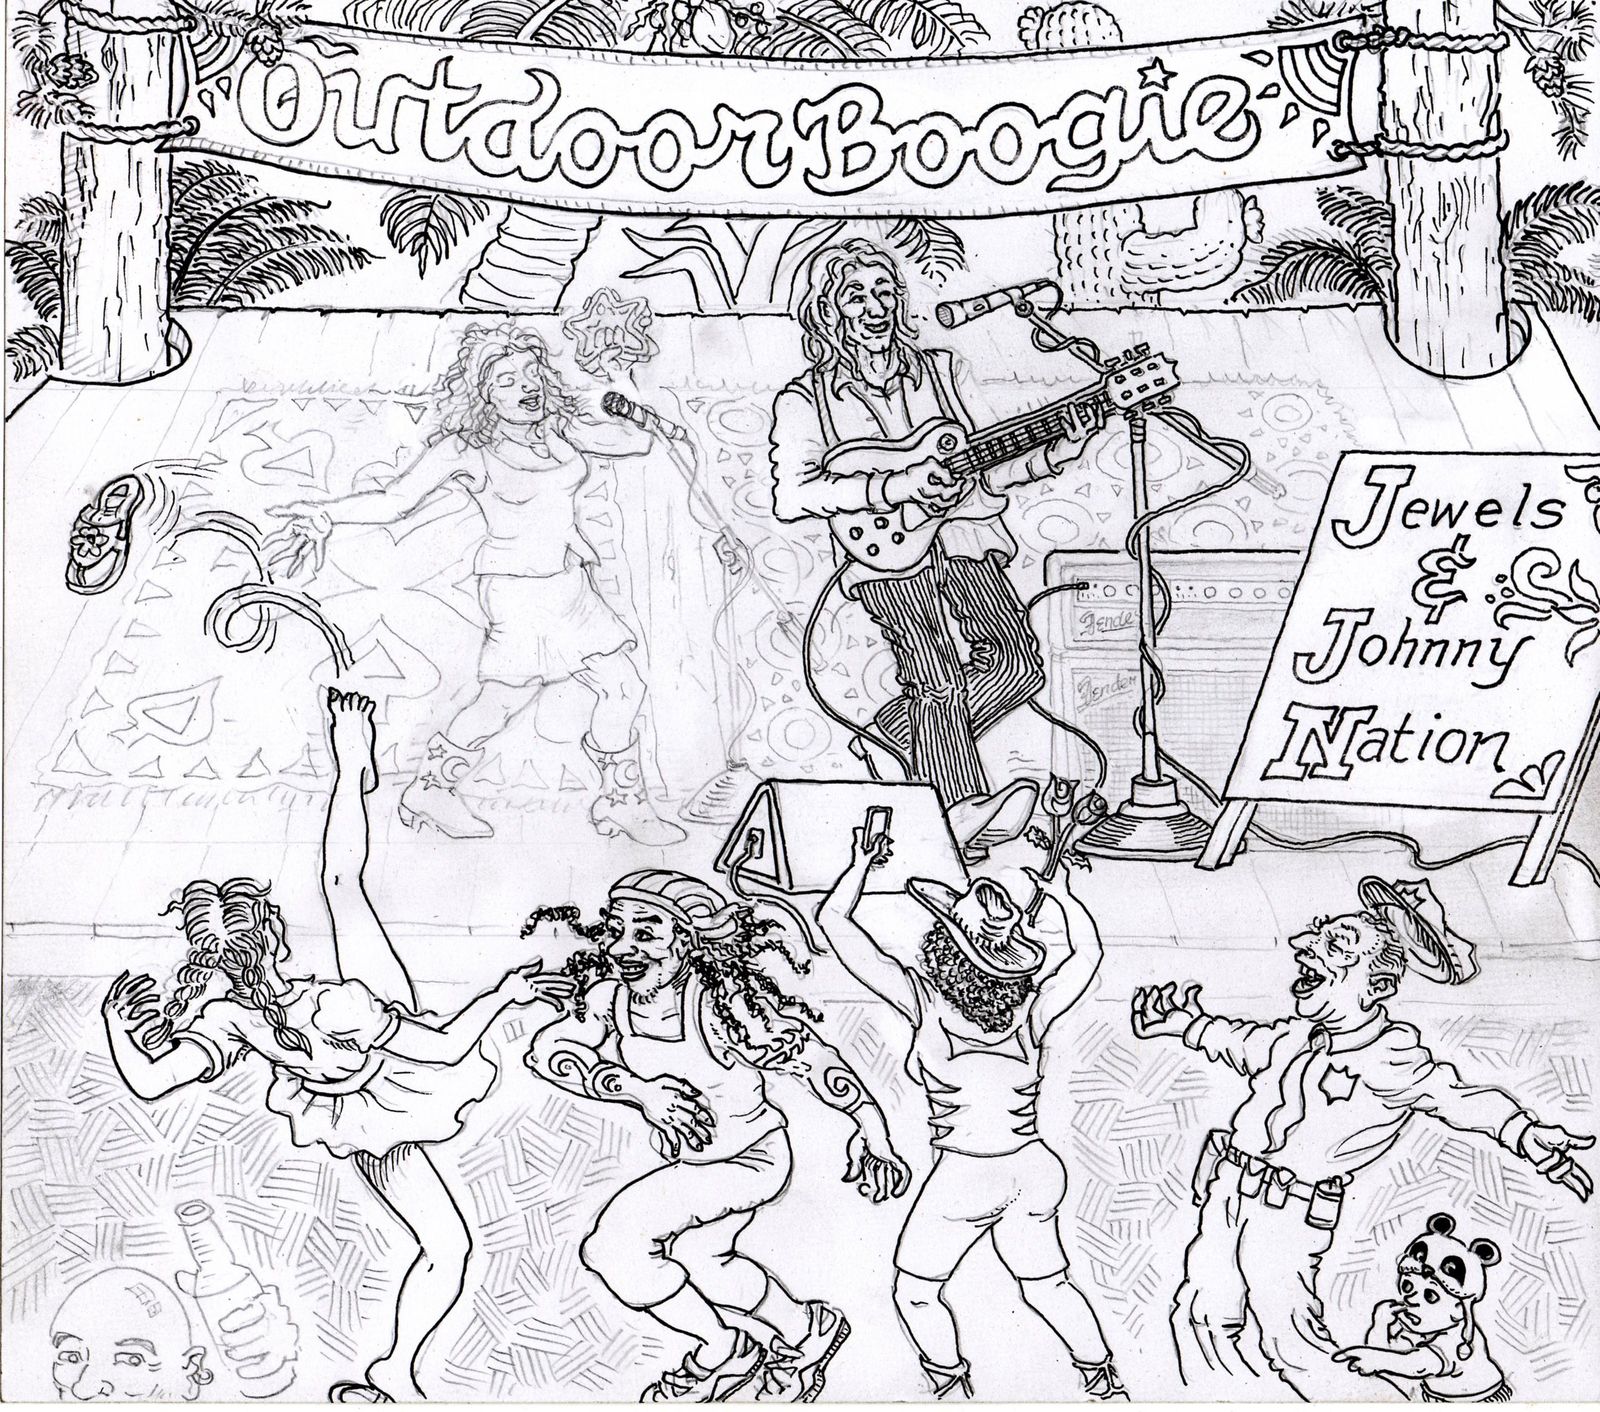 Outdoor Boogie
Jewels
&
Johnny
Nation
Fender
Fender